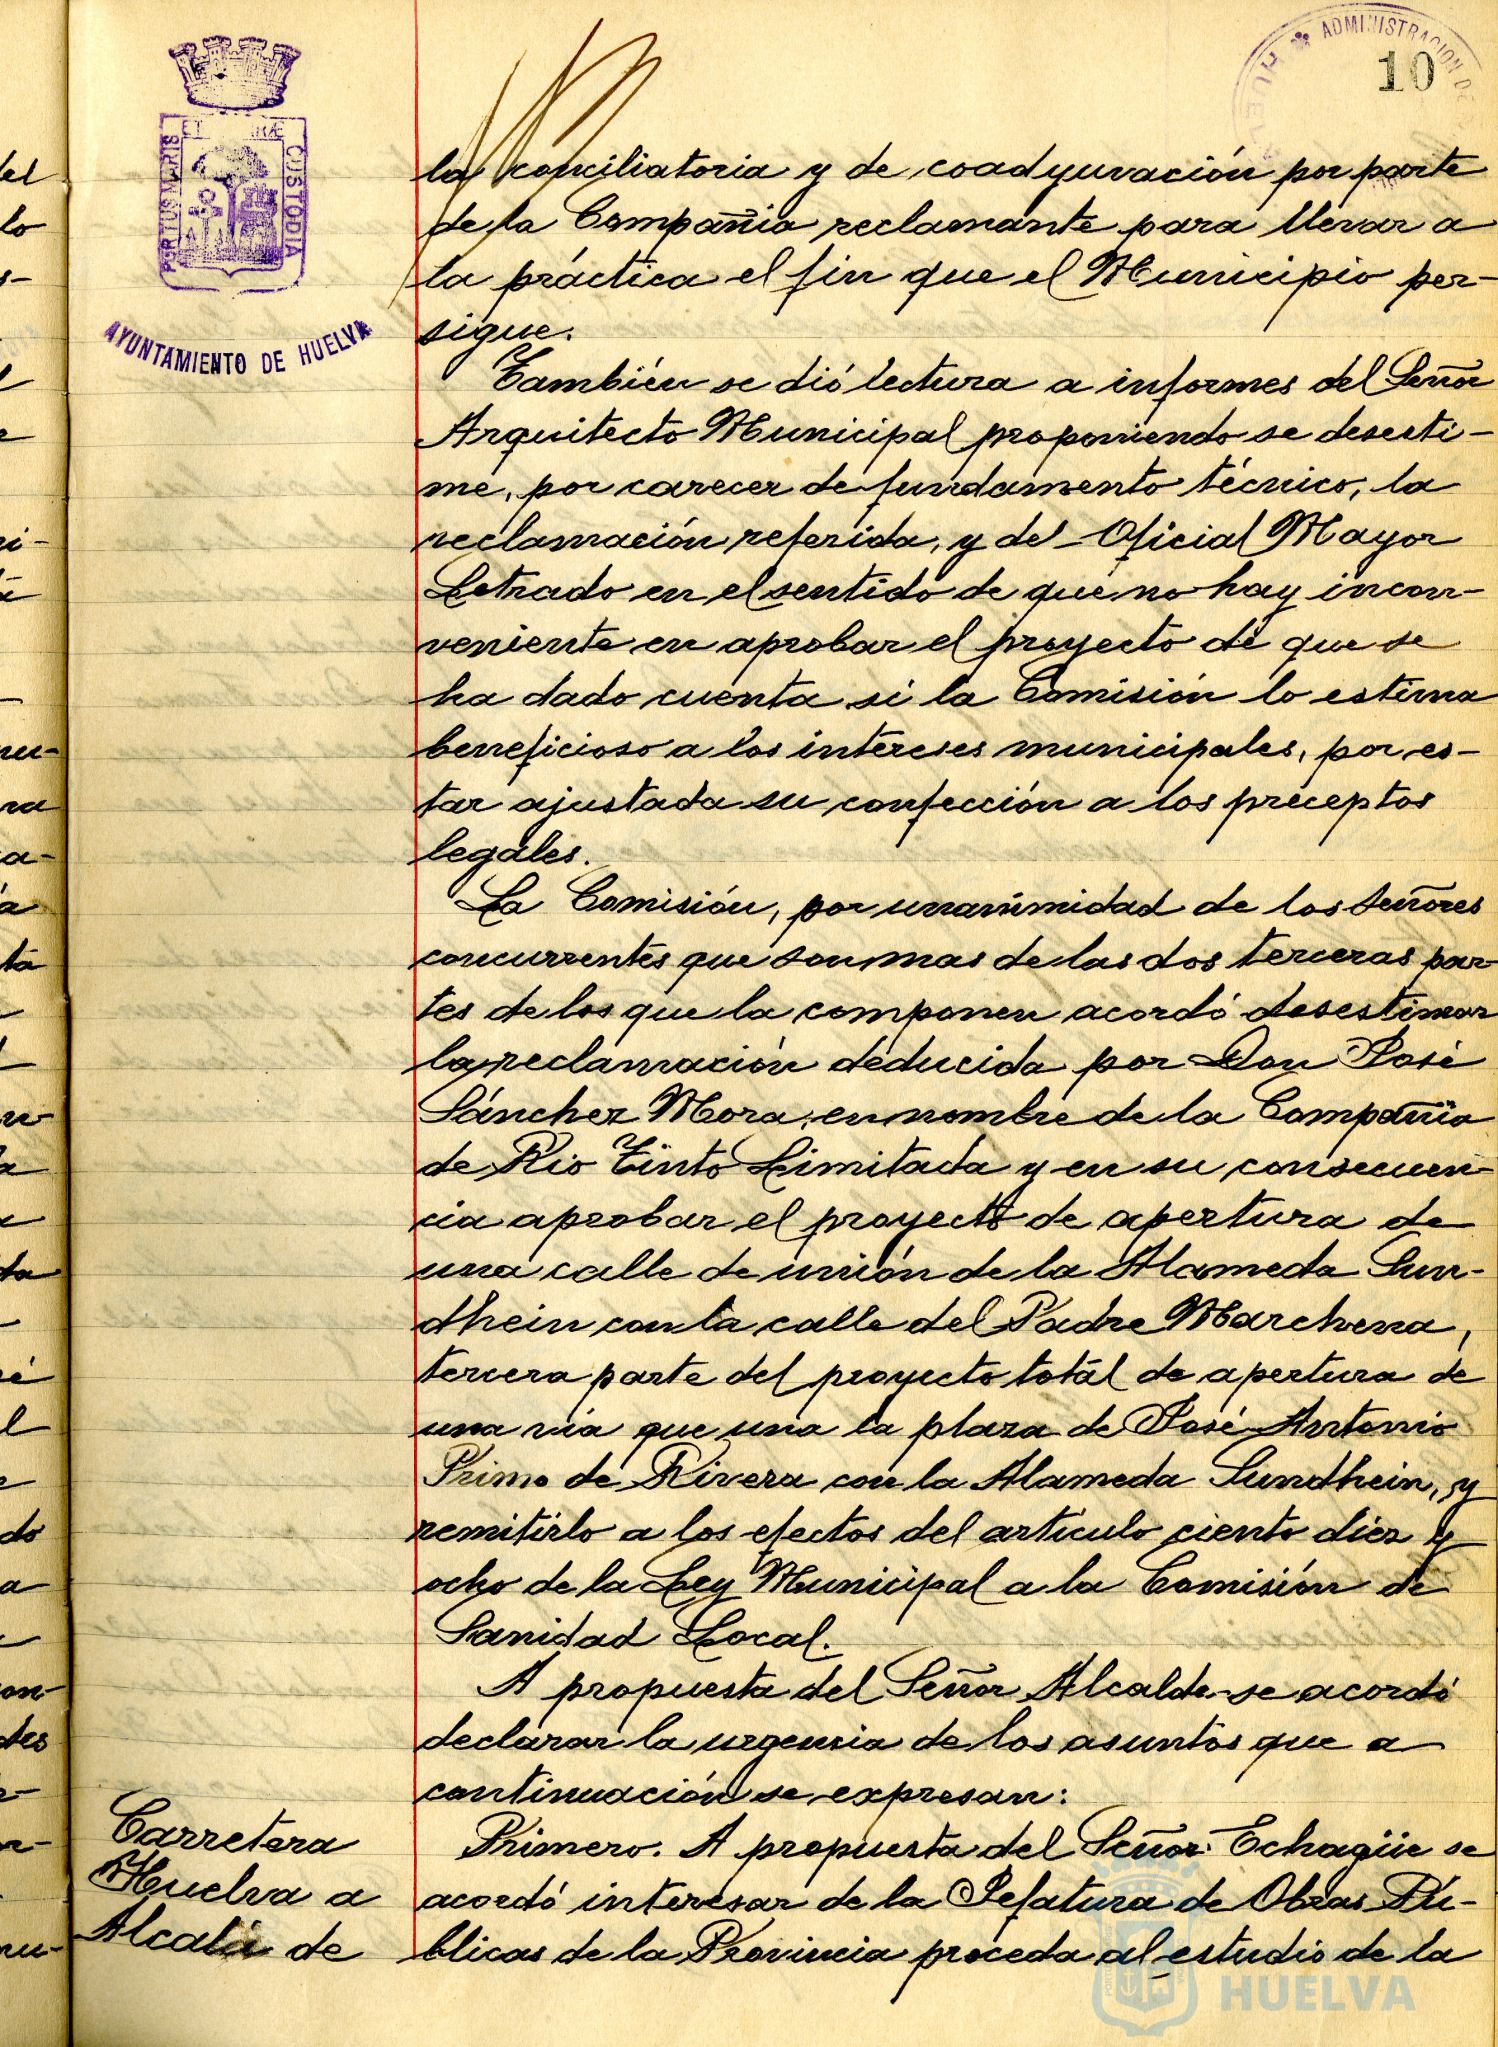 ADMINISTRACION DE
HUELVA
10
PORTUS MARIS
ET
CUSTODIA
AYUNTAMIENTO DE HUELVA
la conciliatoria y de coadyuvación por parte
de la Compañia reclamante para llevar a
la práctica el fin que el Municipio per-
sigue.
También se dió lectura a informes del Señor
Arquitecto Municipal proponiendo se desesti-
me, por carecer de fundamento técnico, la
reclamación referida, y del Oficial Mayor
Letrado en el sentido de que no hay incon-
veniente en aprobar el proyecto de que se
ha dado cuenta si la Comisión lo estima
beneficioso a los intereses municipales, por es-
tar ajustada su confección a los preceptos
legales.
La Comisión, por unanimidad de los Señores
concurrentes que son mas de las dos terceras par-
tes de los que la componen acordó desestimar
la reclamación deducida por Don José
Sánchez Mora, en nombre de la Compañia
de Rio Tinto Limitada y en su consecuen-
cia aprobar el proyecto de apertura de
una calle de unión de la Alameda Sun-
dhein con la calle del Padre Marchena,
tercera parte del proyecto total de apertura de
una via que una la plaza de José Antonio
Primo de Rivera con la Alameda Sundhein, y
remitirlo a los efectos del articulo ciento diez y
ocho de la Ley Municipal a la Comisión de
Sanidad Local.
A propuesta del Señor Alcalde se acordó
declarar la urgencia de los asuntos que a
continuación se expresan:
Carretera
Huelva a
Alcalá de
Primero. A propuesta del Señor Echagüe se
acordó interesar de la Jefatura de Obras Pú-
blicas de la Provincia proceda al estudio de la
HUELVA